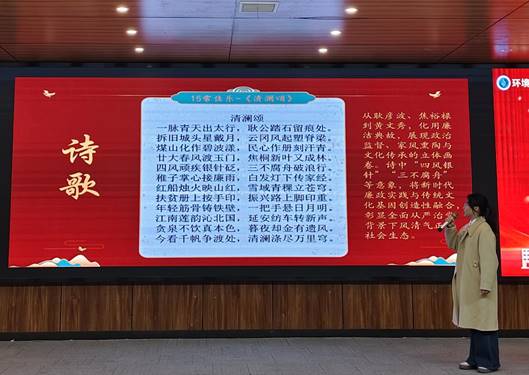 15常佳乐-《清澜颂》
诗歌
清澜颂
一脉青天出太行，耿公踏石留痕处。
拆旧城头星戴月，云冈风起塑脊梁。
煤山化作碧波漾，民心作册刻汗青。
廿大春风渡玉门，焦桐新叶又成林。
四风顽疾银针砭，三不腐舟破浪行。
稚子掌心接廉雨，白发灯下传家经。
红船烛火映山红，雪域青稞立苍穹。
扶贫册上按手印，振兴路上脚印重。
年轻筋骨铸铁壁，一把手悬日月明。
江南莲韵沁北国，延安纺车转新声。
贪泉不饮真本色，暮夜却金有遗风。
今看千帆争渡处，清澜涤尽万里穹。
从耿彦波、焦裕禄
到黄文秀，化用廉
洁典故，展现政治
监督、家风重陶与
文化传承的立体画
卷。诗中“四风银
针”“三不腐舟”
等意象，将新时代
廉政实践与传统文
化基因创造性融合，
彰显全面从严治
背景下风清气正
社会生态。
环境